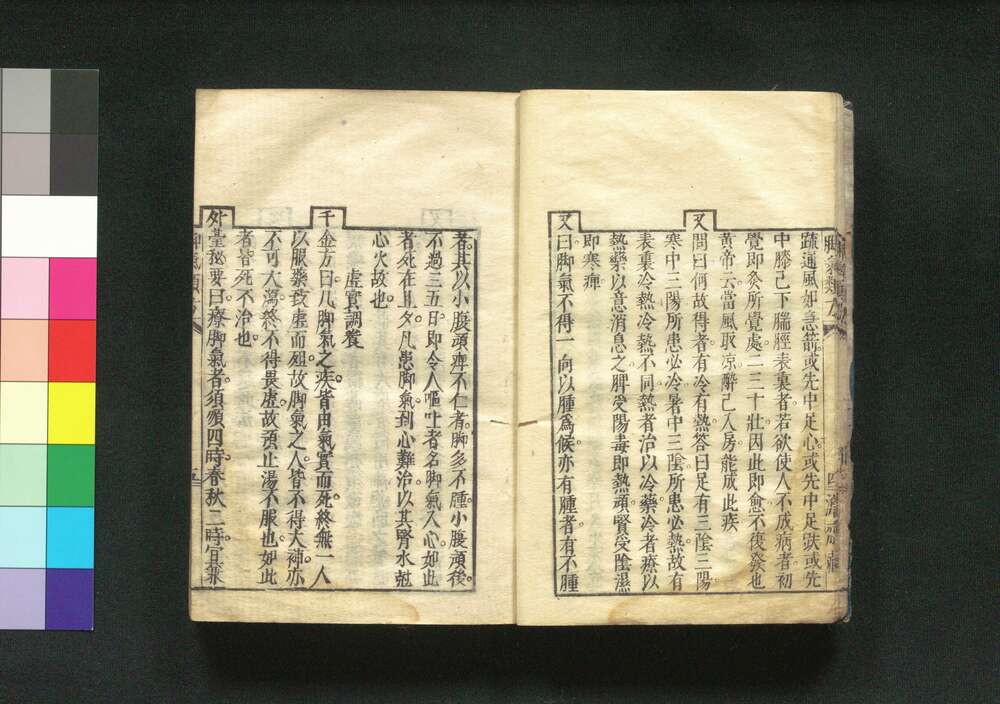 疏通風如急箭或先中足心或先中足趺或先
中膝已下腨脛表裏者若欲使人不成病者初
覺即灸所覺處二三十壯因此即愈不復發也
黃帝云當風取凉醉已入房能成此疾
又問曰何故得者有冷有熱答曰足有三陰三陽
寒中三陽所患必冷暑中三陰所患必熱故有
表裏冷熱冷熱不同熱者治以冷藥冷者療以
熱藥以意消息之脾受陽毒即熱頑腎受陰濕
即寒痺
又曰脚氣不得一向以腫爲候亦有腫者有不腫
者其以小腹頑痺不仁者脚多不腫小腹頑後
不過三五日即令人嘔吐者名脚氣入心如此
者死在旦夕凡患脚氣到心難治以其腎水尅
心火故也
虛實調養
千金方曰凡脚氣之疾皆由氣實而死終無一人
以服藥致虛而殂故脚氣之人皆不得大補亦
不可大瀉終不得畏虛故預止湯不服也如此
者皆死不治也
外臺祕要曰療脚氣者須順四時春秋二時宜兼